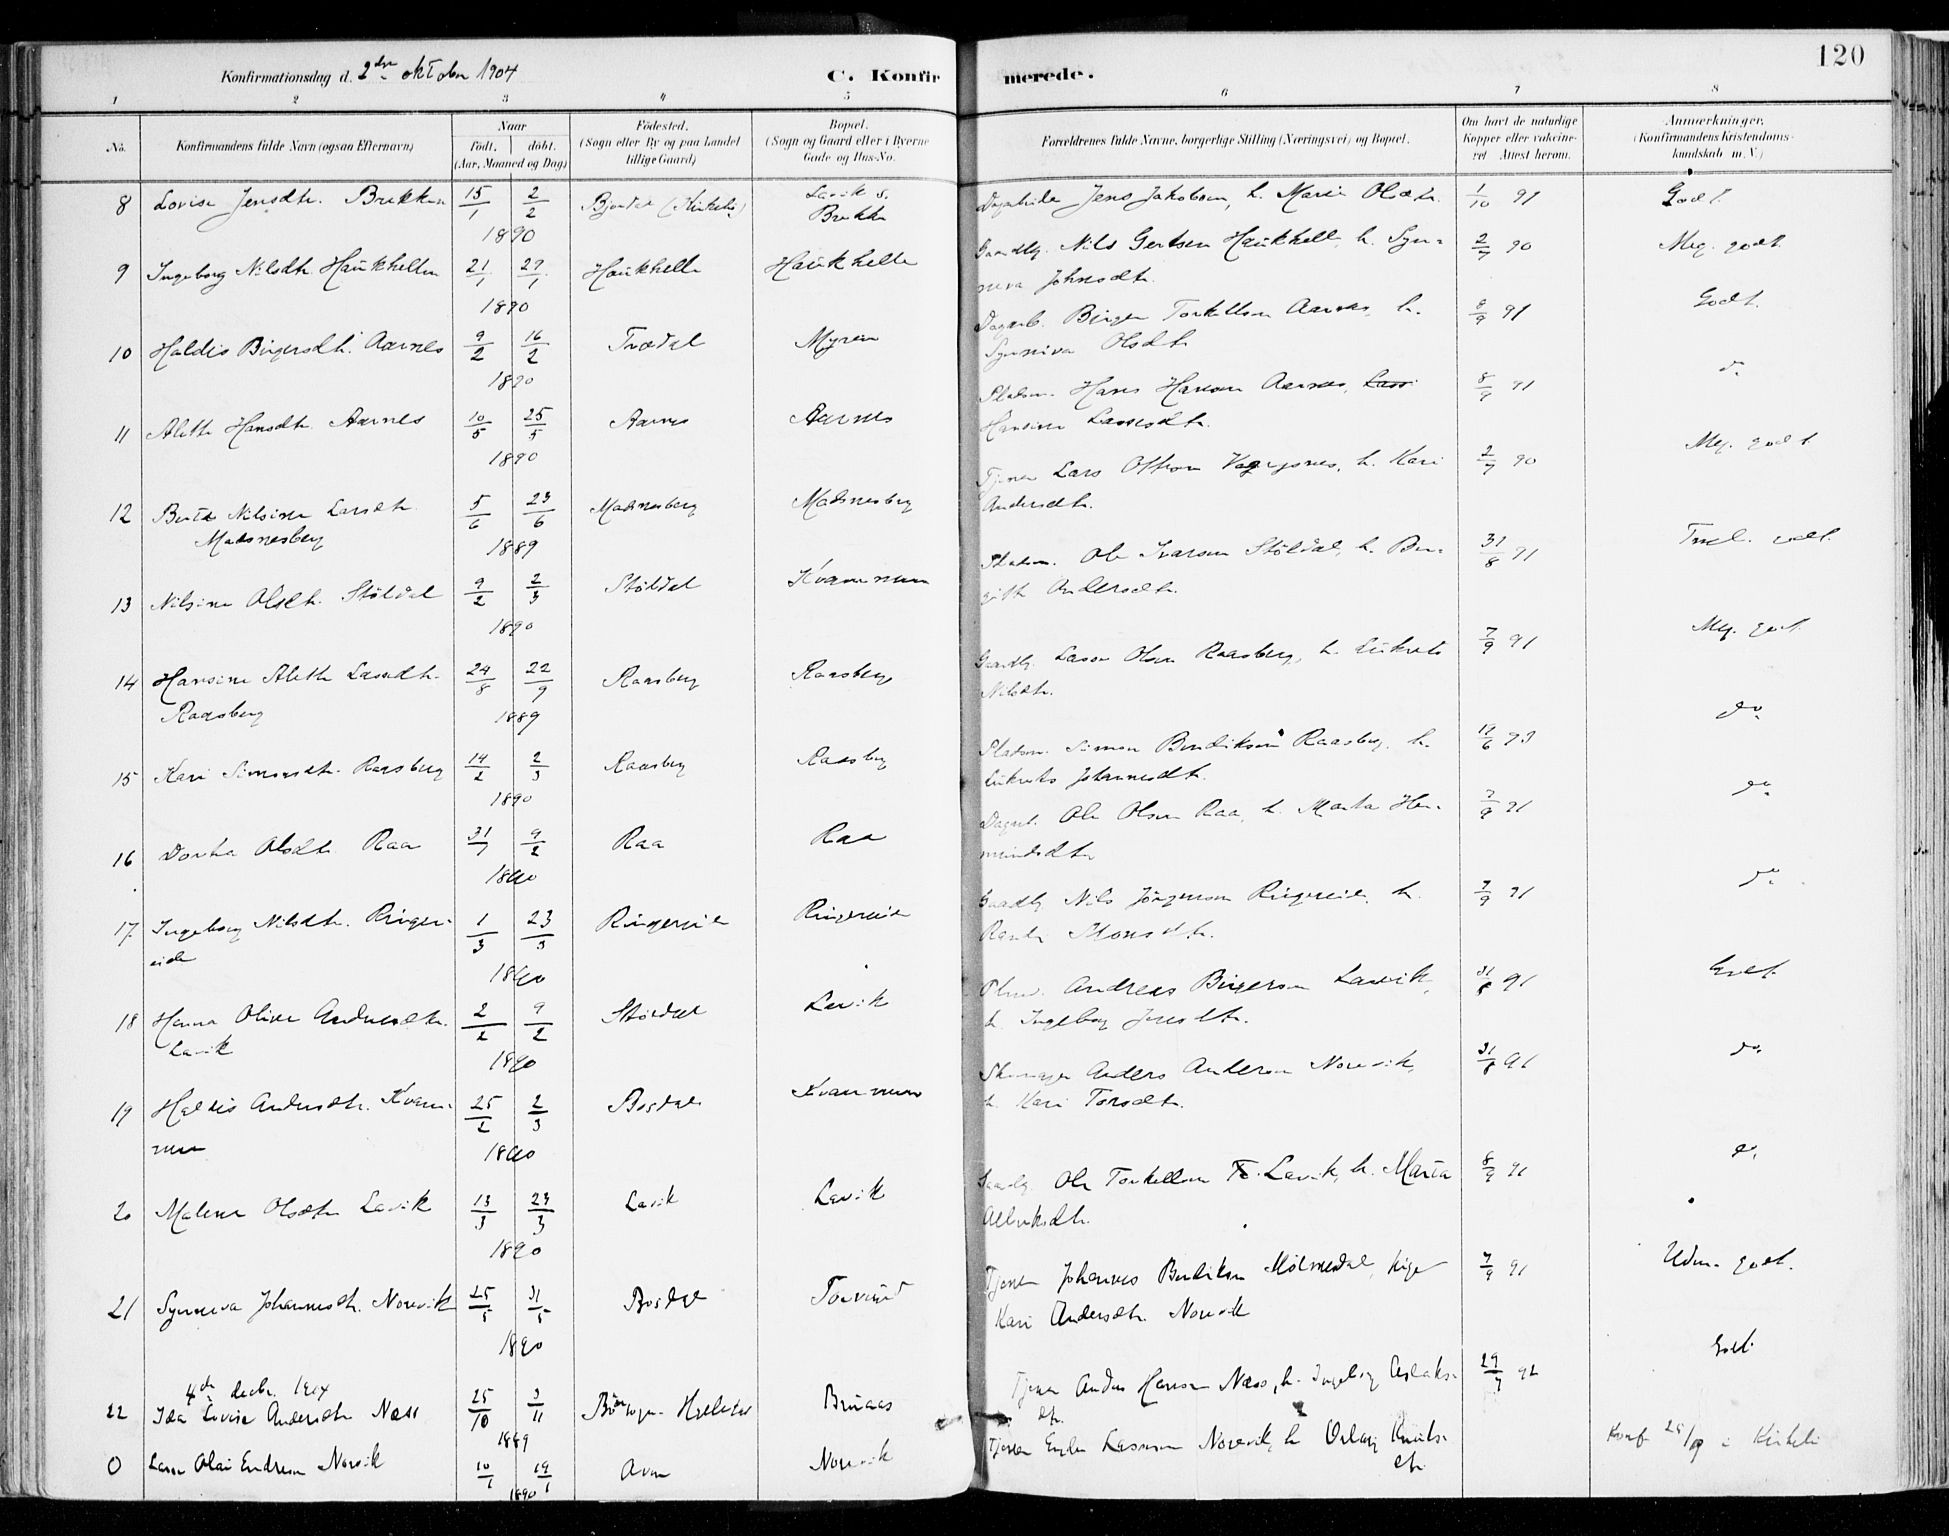 Konfirmationsdag d. 2den oktober 1904
C. Konfirmerede.
120
1 2 3 4 5 6 7 8
No.
Konfirmandens fulde Navn (ogsaa Efternavn)
Naar
født. døbt.
(Aar, Maaned og Dag)
Fødested.
(Sogn eller By og paa Landet
tillige Gaard)
Bopæl.
(Sogn og Gaard eller i Byerne
Gade og Hus-No.
Forældrenes fulde Navne, borgerlige Stilling (Næringsvei) og Bopæl.
Om havt de naturlige
Kopper eller vakcine-
ret Attest herom.
Anmærkninger,
(Konfirmandens Kristendoms-
kundskab m.V.)
8 Lovise Jensdtr. Brekken 15/1 2/2 1890 Lavik s. Brekke Jens Jakobsen, h. Marie Olsdtr. 1/10 91 Godt.
9 Ingeborg Nilsdtr. Haukhellen 21/1 27/1 1890 Haukhelle Haukhelle Gaardbr. Nils Gertsen Haukhelle, h. Syn-
neva Johnsdtr. 2/7 90 Meg. godt.
10 Haldis Birgersdtr. Aarnes 9/2 16/2 1890 Trædal Myren Dagarb. Birger Torkelsen Aarnes, h.
Synneva Olsdtr. 8/9 91 Godt.
11 Aleth Hansdtr. Aarnes 10/5 25/5 1890 Aarnes Aarnes Pladsm. Hans Hansen Aarnes,
Hansine Lassesdtr. 8/9 91 do
12 Berte Nilsine Larsdtr.
Madsnesberg 5/6 23/6 1889 Madsnesberg Madsnesberg Tjener Lars Ottesen h. Kari
Andersdtr. 2/7 90 Meg. godt.
13 Nilsine Olsdtr. Støldal 9/2 2/3 1890 Støldal Kvammen Pladsm. Ole Ivarsen Støldal, h. Ber-
gith Andersdtr. 31/8 91 godt.
14 Hansine Aleth Lassedtr.
Raasberg 24/8 22/9 1889 Raasberg Raasberg Gaardbr. Lasse Olsen Raasberg, h. Lukrets
Nilsdtr. 7/9 91 Meg. godt.
15 Kari Simonsdtr. Raasberg 14/2 2/3 1890 Raasberg Raasberg Pladsm. Simon Bendiksen Raasberg, h.
Lukrets Johannesdtr. 93 do
16 Dortea Olsdtr. Raa 31/1 9/2 1890 Raa Raa Dagarb. Ole Olsen Raa, h. Marta Her-
mundsdtr. 7/9 91 do
17 Ingeborg Nilsdtr. Ringer-
eide 1/3 23/3 1890 Ringereide Ringereide Gaardbr. Nils Jörgensen Ringereide, h.
Monsdtr. 7/9 91 do
18 Hanna Olive Andreasdtr.
Lavik 2/2 9/2 1890 Støldal Lavik Andreas Birgersen Lavik,
h. Ingeborg Jensdtr. 31/8 91 Godt.
19 Haldis Andersdtr. Kvam-
men 25/2 2/3 1890 Bosdal Kvammen Skomager Anders Andersen Norevik,
h. Kari Torsdtr. 31/8 91 do
20 Malene Olsdtr. Lavik 13/3 23/3 1890 Lavik Lavik Gaardbr. Ole Torkelsen Lavik, h. Marta
8/9 91 do
21 Synneva Johannesdtr. Norevik 25/5 31/5 1890 Bosdal Torvund Tjener Johannes Bendiksen Mölmesdal, pige
Kari Andersdtr. Norevik 7/9 91 Udm. godt.
4de decbr. 1904
22 Ida Lovise Andersdtr. Næss 25/10 3/11 1889 Bruaas Tjener Anders Hansen Næss, h. Ingeborg Aslaks-
dtr. 29/7 92 Godt.
0 Lasse Olai Endresen Norevik 10/1 19/1 1890 Norevik Tjener Endre Lassesen Norevik, h. Knuts-
dtr. Konf 25/9 i Kirkebö